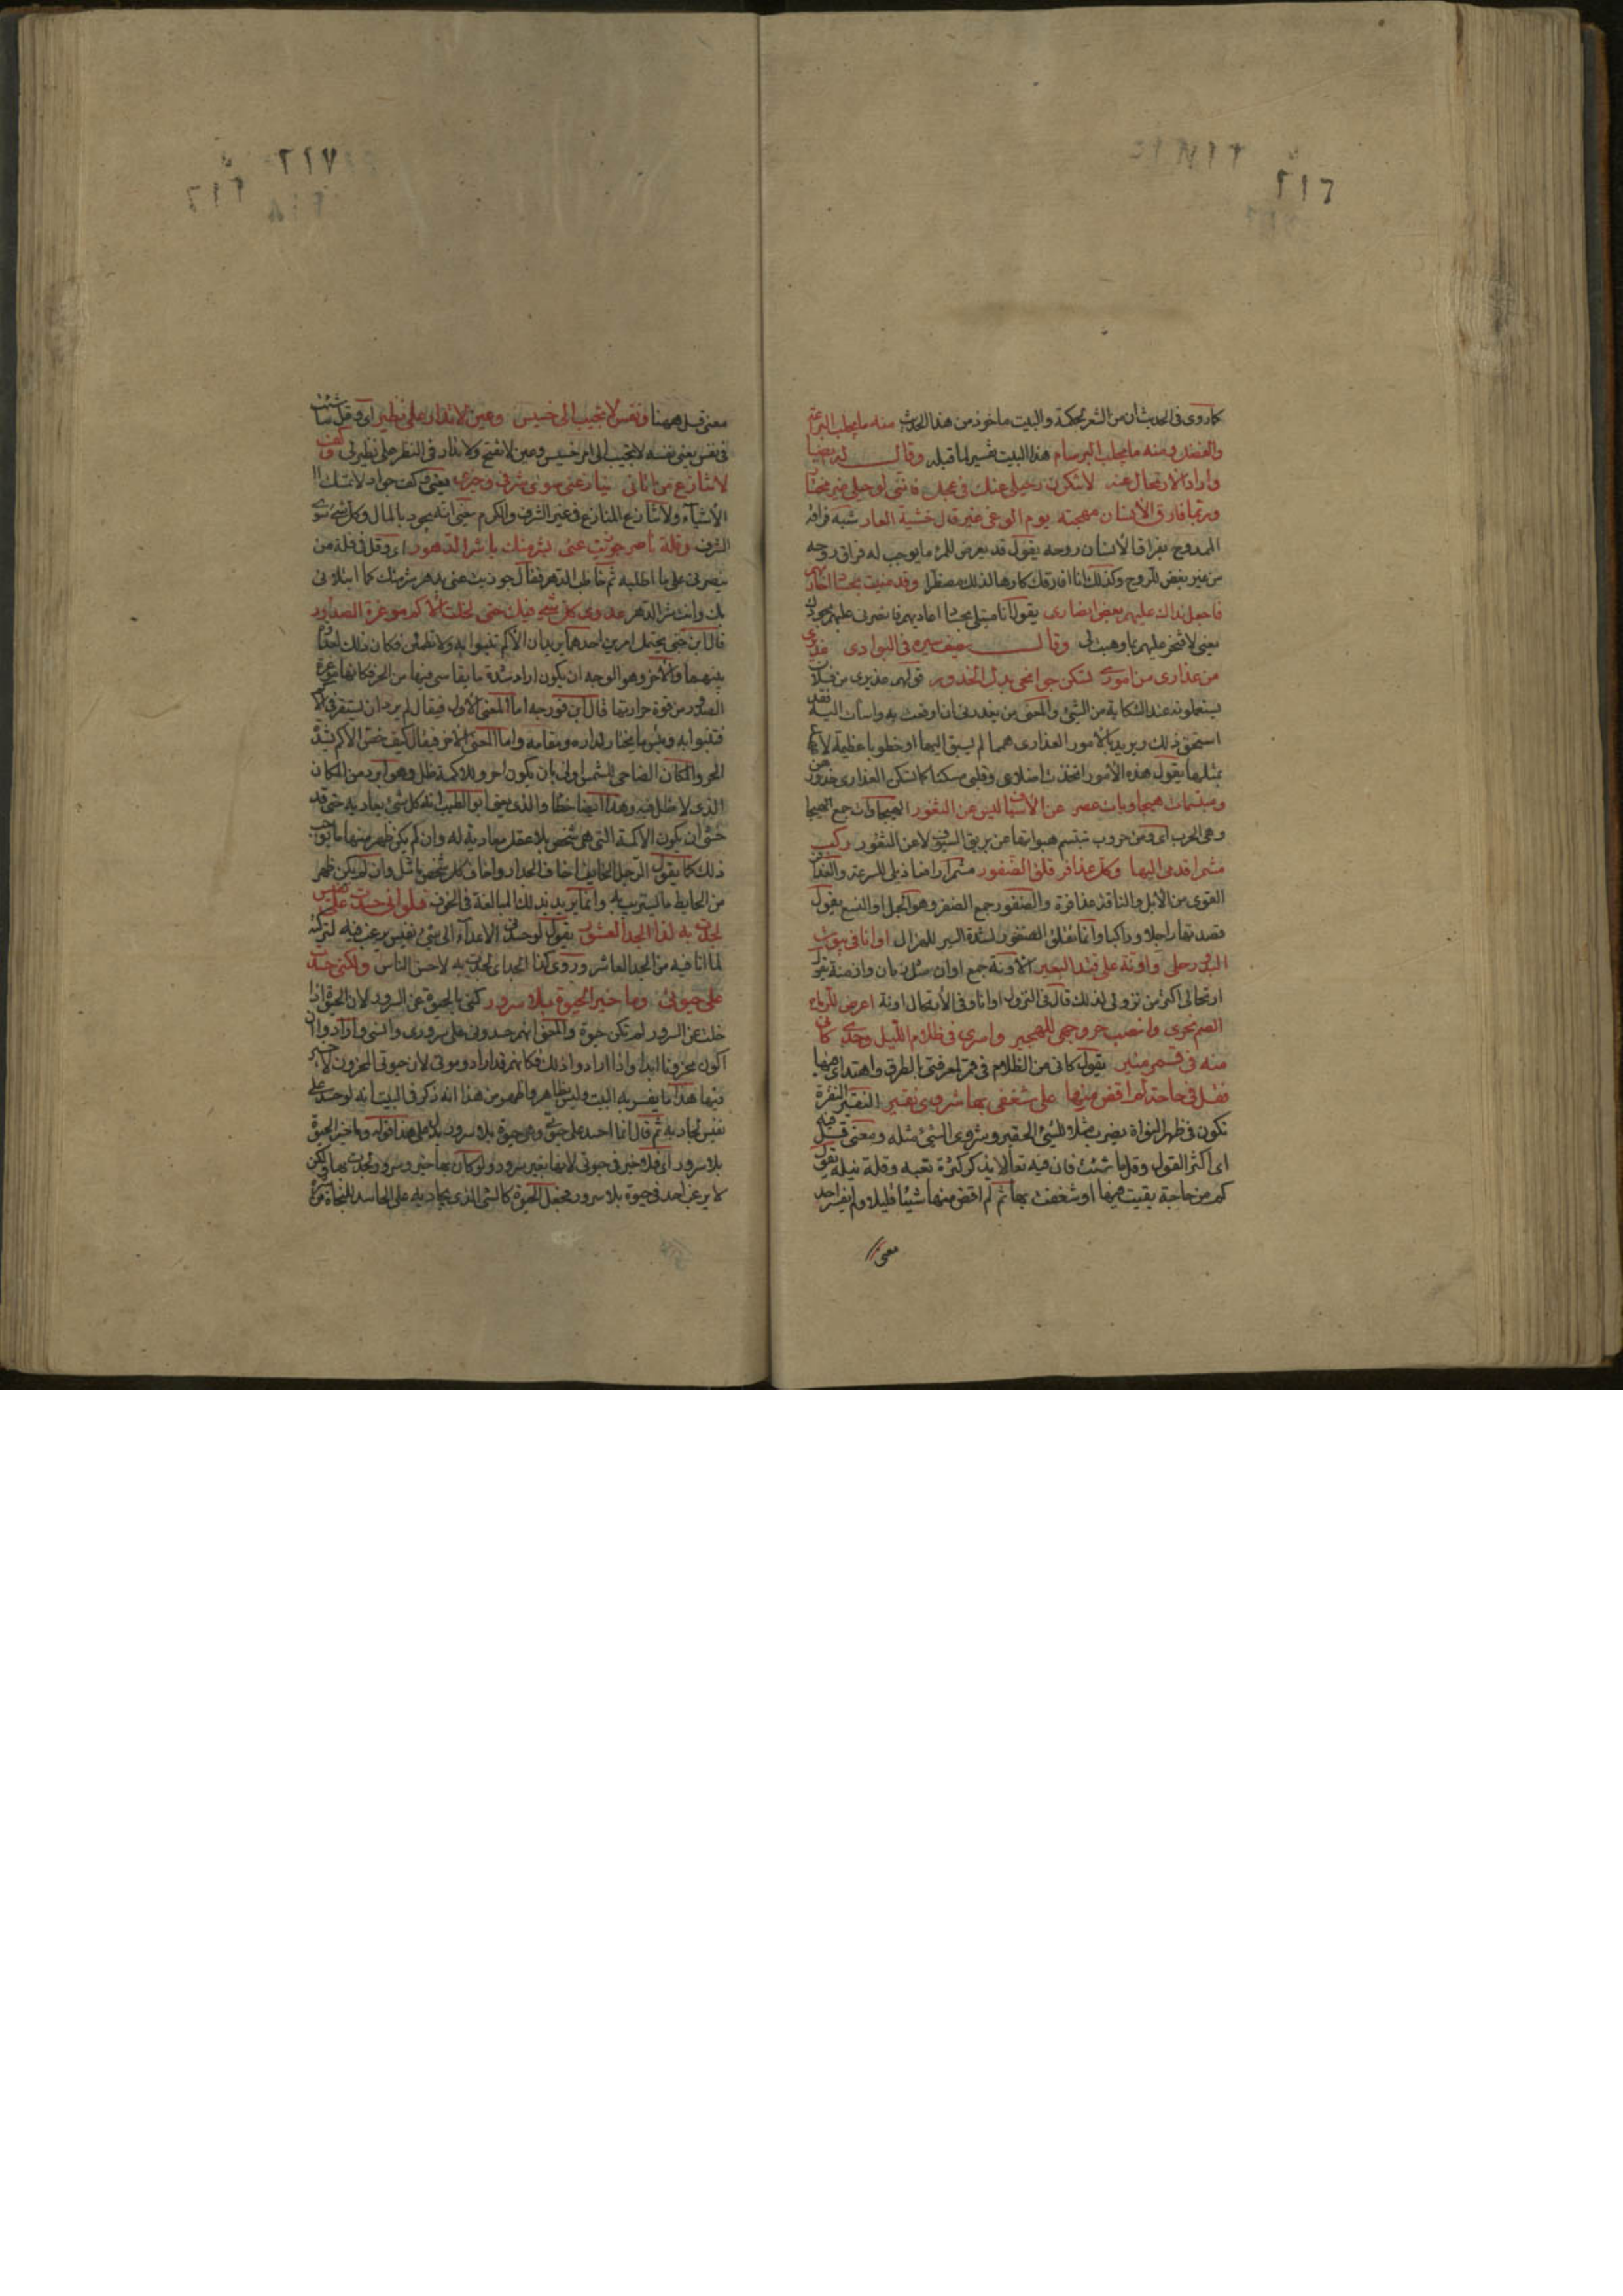 ٢١٦
كما روى فى الحديث ان من الشعر لحكمة والبيت ماخوذ من هذا الحديث منه ما يجلب البراعة
والفضل ومنه ما يجلب البرسام هذا البيت تفسير لما قبله وقال ايضا
واراد الارتحال عنه لا تنكرن رحيلى عنك فى عجل فاننى لرحيلى غير مختار
وربما فارق الانسان مهجته يوم الوغى غير قال خشية العار شبه فراقه
الممدوح بفراق الانسان روحه يقول قد يعرض للمرء ما يوجب له فراق روحه
من غير بغض للروح وكذلك انا افارقك كارها لذلك مضطرا وقد منيت بحساد احاربهم
فاجعل نداك عليهم بعض انصارى يقول انا مبتلى بحساد اعاديهم فانصرنى عليهم بجودك
يعنى لافتخر عليهم بما وهبت لى وقال يصف سيره فى البوادى عذيرى
من عذارى من امور سكن جوانحى بدل الخدور قولهم عذيرى من فلان
يستعملونه عند الشكاية من الشئ والمعنى من يعذرنى ان اوقعت به واسأت اليه فقد
استحق ذلك ويريد بالامور العذارى همما لم يسبق اليها او خطوبا عظيمة لا
بمثلها يقول هذه الامور اتخذت اضلاعى وقلبى مسكنا كما تسكن العذارى خدورهن
ومبتسمات هيجاوات عصر عن الاسياف ليس عن الثغور الهيجاوات جمع الهيجا
وهى الحرب اى ومن حروب تبتسم هبواتها عن بريق السيوف لا عن الثغور ركبت
مشمرا قدمى اليها وكل عذافر قلق الضفور مشمرا رافعا ذيلى للسرعة والعذافر
القوى من الابل والناقة عذافرة والضفور جمع الضفر وهو الحبل او النسع يقول
قصدتها راجلا وراكبا وانما يقلق الضفور لشدة السير للهزال اوانا فى بيوت
البدو رحلى واونة على قتد البعير الاونة جمع اوان مثل زمان وازمنة يقول
ارتحالى اكثر من نزولى لذلك قال فى النزول اوانا وفى الارتحال اونة اعرض للرماح
الصم نحرى وانصب حر وجهى للهجير واسرى فى ظلام الليل وحدى كانى
منه فى قمر منير يقول كانى من الظلام فى قمر لمعرفتى بالطرق واهتداى فيها
فقل فى حاجة لم اقض منها على شغفى بها شروى نقير النقير النقرة
تكون فى ظهر النواة يضرب مثلا للشئ الحقير وشروى الشئ مثله ومعنى قل فيه
اى اكثر القول وقل ما شئت فان فيه مقالا يذكر كثرة تعبه وقلة نيله يقول
كم من حاجة بقيت فيها او شغفت بها ثم لم اقض منها شيئا قليلا ولم يفسر احد
معنى
٢١٧
معنى قل ههنا ونفس لا تجيب الى خسيس وعين لا تدار على نظير اى وقل ما شئت
فى نفس يعنى نفسه لا تجيب الى امر خسيس وعين لا تفتح ولا تدار فى النظر على نظير لى وكف
لا تنازع من اتانى ينازعنى سوى شرفى وخيرى يعنى وكف جواد لا تمسك
الاشياء ولا تنازع المنازع فى غير الشرف والكرم يعنى انه يجود بالمال وكل شئ سوى
الشرف وقلة ناصر جوزيت عنى بشر منك يا شر الدهور اى وقل فى قلة من
ينصرنى على ما اطلبه ثم خاطب الدهر فقال جوزيت عنى بدهر شر منك كما ابتلانى
بك وانت شر الدهر عدوى كل شئ فيك حتى لخلت الاكم موغرة الصدور
قال ابن جنى يحتمل امرين احدهما يريد ان الاكم تنبوا به ولا تطمئن فكان ذلك لعداوة
بينهما والاخر وهو الوجه ان يكون اراد شدة ما يقاسى فيها من الحر فكانها موغرة
الصدور من قوة حرارتها قال ابن فورجه اما المعنى الاول فيقال لم يرد ان يستقر فى الاكم
فتنبوا به وبئس ما يختار لداره ومقامه واما المعنى الاخر فيقال كيف خص الاكم بشدة
الحر والمكان الضاحى للشمس اولى بان يكون احر وللاكمة ظل وهو ابرد من المكان
الذى لا ظل فيه وهذا ايضا خطا والذى عنى ابو الطيب انه كل شئ يعاديه حتى قد
خشى ان يكون الاكمة التى هى شخص بلا عقل معادية له وان لم يكن ظهر منها ما يوجب
ذلك كما يقول الرجل الخايف اخاف الجدار واخاف كل شخص ماثل وان لم يكن ظهر
من الحايط ما يستريب به وانما يريد بذلك المبالغة فى الخوف فلو انى حسدت على نفيس
لجدت به لذا الجد العثور يقول لو حسدنى الاعداء الى شئ نفيس يرغب فيه لتركته
لما انا فيه من الجد العاثر وروى لذا الجد اى لجدت به لاخس الناس ولكنى حسدت
على حيوتى وما خير الحيوة بلا سرور كنى بالحيوة عن السرور لان الحيوة اذا
خلت عن السرور لم تكن حيوة والمعنى انهم حسدونى على سرورى وانسى وارادوا ان
اكون محزونا ابدا واذا ارادوا ذلك فكانهم قد ارادوا موتى لان حيوة المحزون لا خير
فيها هذا ما يفسر به البيت وليس بظاهر واظهر من هذا انه ذكر فى البيت انه لو حسد على
نفيس لجاد به ثم قال انما احسد على حيوتى وهى حيوة بلا سرور بلا على هذا قوله وما خير الحيوة
بلا سرور اى فلا خير فى حيوتى لانها بغير سرور ولو كان بها خير وسرور لجدت بها ولكن
لا يرغب احد فى حيوة بلا سرور فجعل الحيوة كالشئ الذى يجاد به على الحاسد للنجاة من